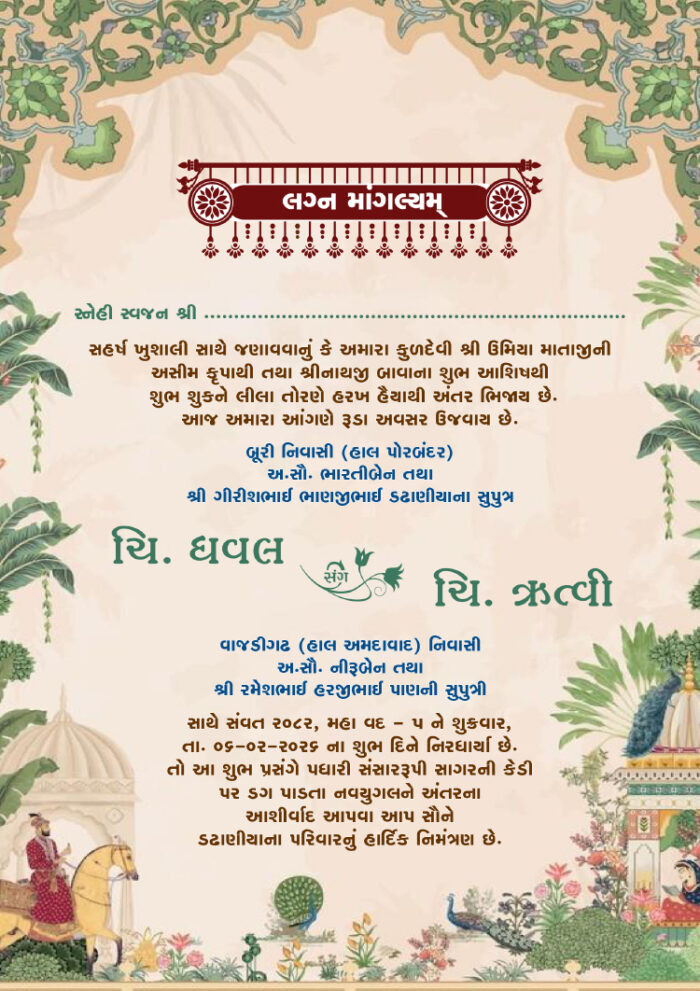 લગ્ન માંગલ્યમ્
સ્નેહી સ્વજન શ્રી ......................................................................
સહર્ષ ખુશાલી સાથે જણાવવાનું કે અમારા કુળદેવી શ્રી ઉમિયા માતાજીની
અસીમ કૃપાથી તથા શ્રીનાથજી બાવાના શુભ આશિષથી
શુભ શુકને લીલા તોરણે હરખ હૈયાથી અંતર ભિજાય છે.
આજ અમારા આંગણે રૂડા અવસર ઉજવાય છે.
બૂરી નિવાસી (હાલ પોરબંદર)
અ.સૌ. ભારતીબેન તથા
શ્રી ગીરીશભાઈ ભાણજીભાઈ ડઢાણીયાના સુપુત્ર
ચિ. ધવલ
સંગ
ચિ. ઋત્વી
વાજડીગઢ (હાલ અમદાવાદ) નિવાસી
અ.સૌ. નીરૂબેન તથા
શ્રી રમેશભાઈ હરજીભાઈ પાણની સુપુત્રી
સાથે સંવત ૨૦૮૨, મહા વદ – ૫ ને શુક્રવાર,
તા. ૦૬–૦૨–૨૦૨૬ ના શુભ દિને નિરધાર્યા છે.
તો આ શુભ પ્રસંગે પધારી સંસારરૂપી સાગરની કેડી
પર ડગ પાડતા નવયુગલને અંતરના
આશીર્વાદ આપવા આપ સૌને
ડઢાણીયાના પરિવારનું હાર્દિક નિમંત્રણ છે.